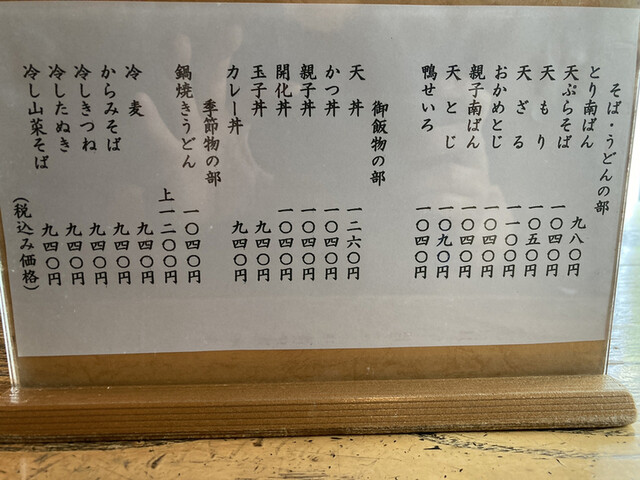 そば・うどんの部
とり南ばん 九八〇円
天ぷらそば 一〇四〇円
天もり 一〇五〇円
天ざる 一一〇〇円
おかめとじ 一〇四〇円
親子南ばん 一〇四〇円
天とじ 一〇九〇円
鴨せいろ 一〇四〇円
御飯物の部
天丼 一二六〇円
かつ丼 一〇四〇円
親子丼 一〇四〇円
開化丼 一〇四〇円
玉子丼 九四〇円
カレー丼 九四〇円
季節物の部
鍋焼きうどん 一〇四〇円
上一二〇〇円
冷麦 九四〇円
からみそば 九四〇円
冷しきつね 九四〇円
冷したぬき 九四〇円
冷し山菜そば 九四〇円
(税込み価格)